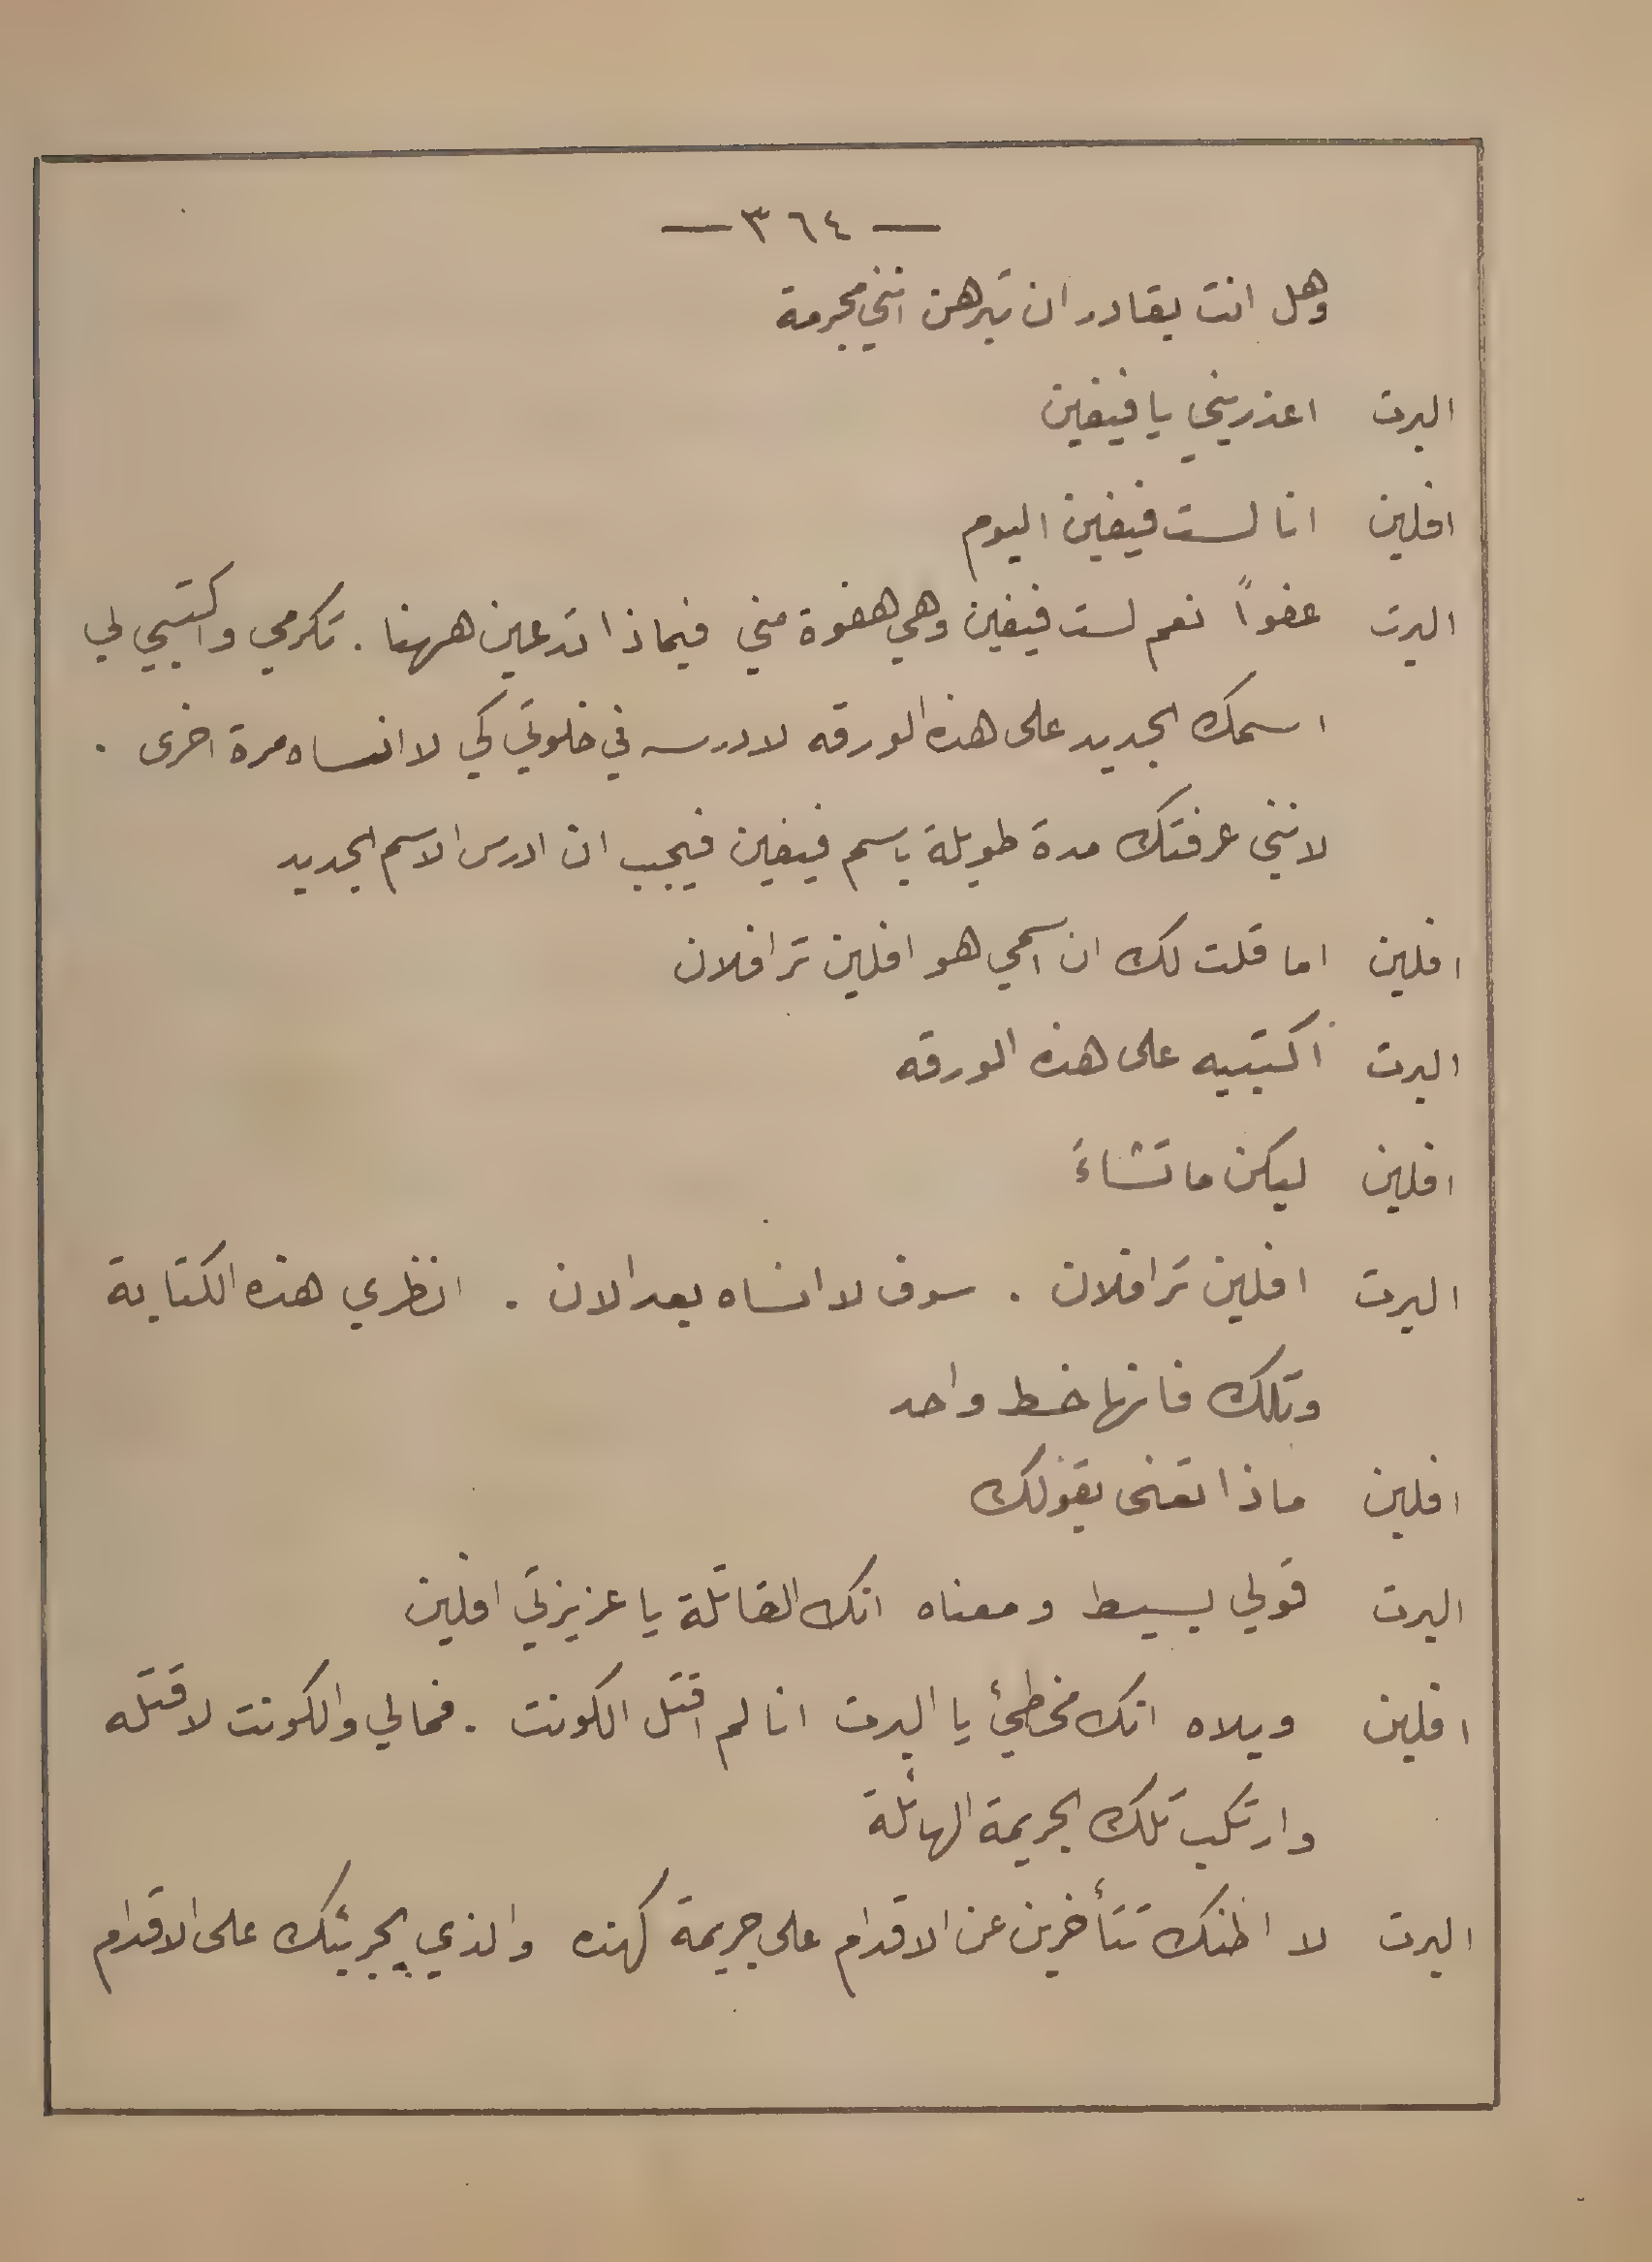 — ٣٦٤ —
وهل انت بقادر ان تبرهن انني مجرمة
البرت اعذريني يا فيفين
افلين انا لست فيفين اليوم
البرت عفواً نعم لست فيفين وهي هفوة مني فيماذا تدعين ههنا . تكرمي واكتبي لي
اسمك الجديد على هذه الورقه لادرسه في خلوتي كي لا انساه مرة اخرى .
لانني عرفتك مدة طويلة باسم فيفين فيجب ان ادرس الاسم الجديد
افلين اما قلت لك ان اسمي هو افلين ترافلان
البرت اكتبيه على هذه الورقه
افلين ليكن ما تشاءُ
البرت افلين ترافلان . سوف لا انساه بعد الان . انظري هذه الكتابة
وتلك فانها خط واحد
افلين ماذا تعنى بقولك
البرت قولي بسيط ومعناه انك القاتلة يا عزيزتي افلين
افلين ويلاه انك مخطئ يا البرت انا لم اقتل الكونت . فمالي والكونت لاقتله
وارتكب تلك الجريمة الهائلة
البرت لا اظنك تتأخرين عن الاقدام على جريمة كهذه والذي يجرئك على الاقدام